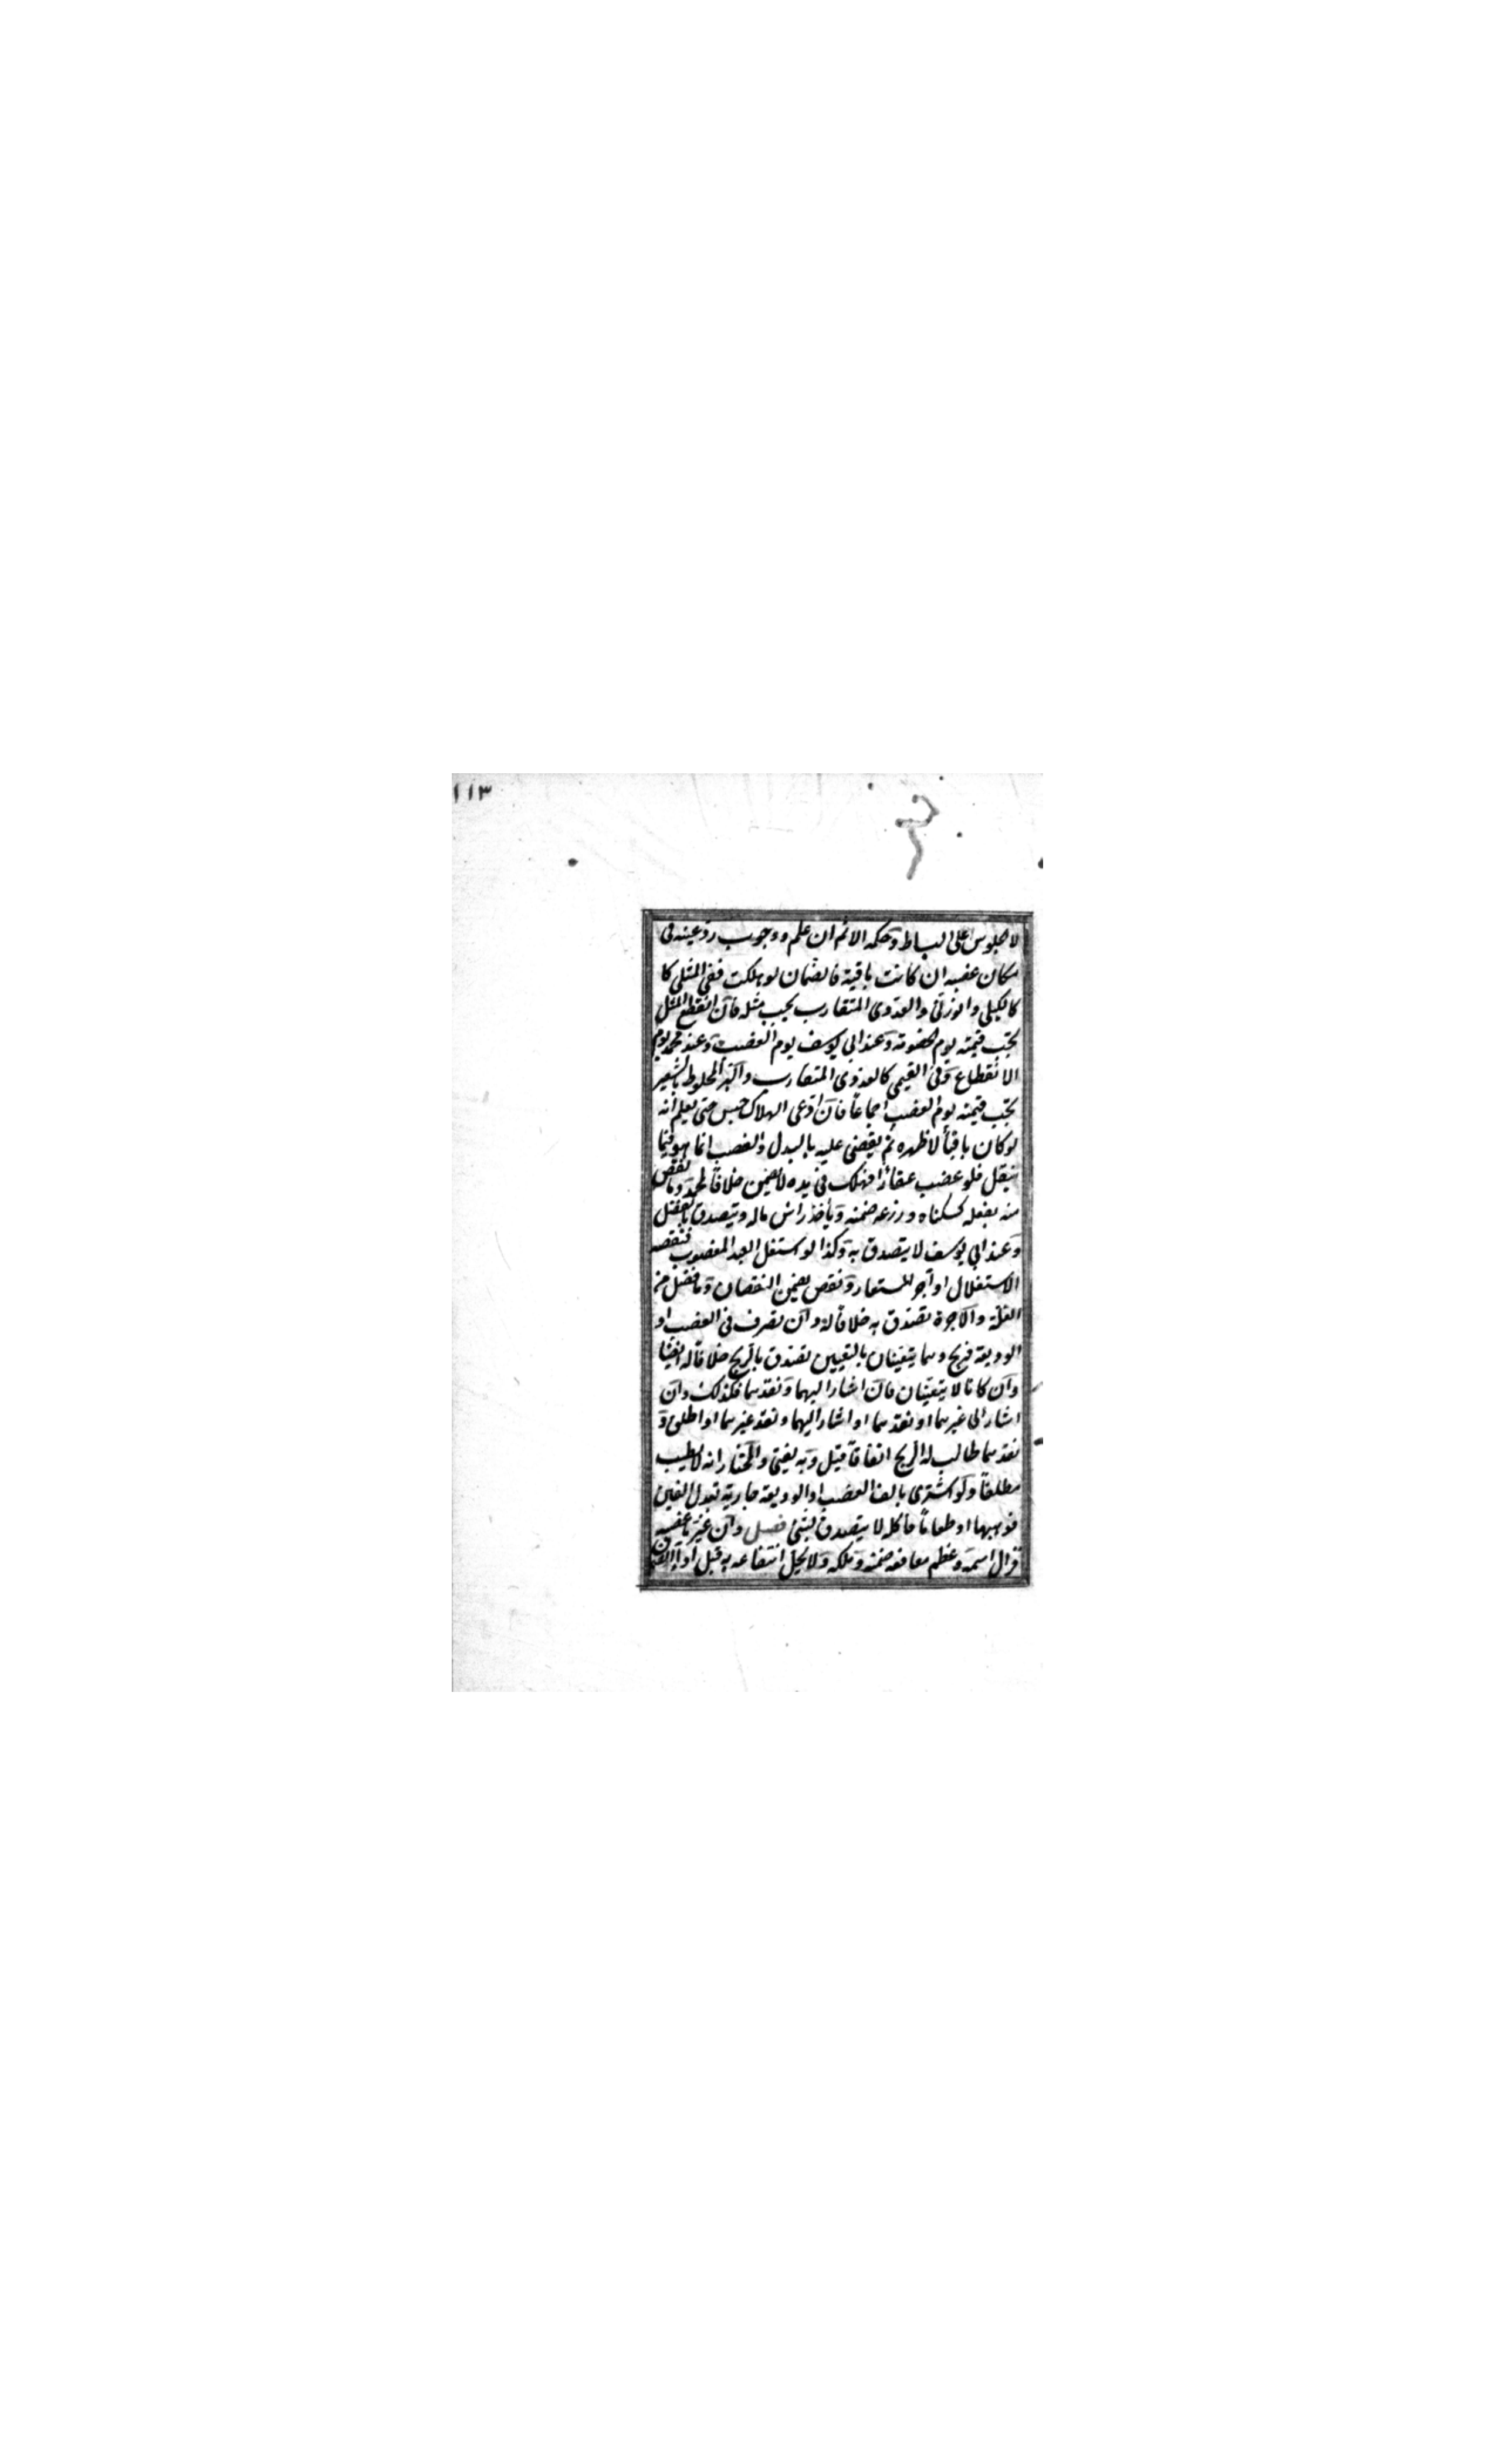 ١١٣
لا الجلوس على البساط وحكمه الاثم ان علم ووجوب رد عينه فى
مكان غصبه ان كانت باقية والضمان لو هلكت ففى المثلى كا
كالكيلى والوزنى والعددى المتقارب يجب مثله فان انقطع المثل
تجب قيمته يوم الخصومة وعند ابى يوسف يوم الغصب وعند محمد يوم
الانقطاع وفى القيمى كالعددى المتقارب والبر المخلوط بالشعير
تجب قيمته يوم الغصب اجماعاً فان ادعى الهلاك حبس حتى يعلم انه
لو كان باقياً لاظهره ثم يقضى عليه بالبدل والغصب انما هو فيما
ينقل فلو غصب عقاراً فهلك فى يده لا يضمن خلافاً لمحمد وما نقص
منه بفعله كسكناه وزرعه ضمنه ويأخذ رأس ماله ويتصدق بالفضل
وعند ابى يوسف لا يتصدق به وكذا لو استغل العبد المغصوب فنقصه
الاستغلال او آجر المستعار ونقص يضمن النقصان وما فضل من
الغلة والاجرة تصدق به خلافاً له وان تصرف فى الغصب او
الوديعة فربح وهما يتعينان بالتعيين تصدق بالربح خلافاً له ايضا
وان كانا لا يتعينان فان اشار اليهما ونقدهما فكذلك وان
اشار الى غيرهما او نقدهما او اشار اليهما ونقد غيرهما او اطلق و
نقدهما طاب له الربح اتفاقاً قيل وبه يفتى والمختار انه لا يطيب
مطلقاً ولو اشترى بالف الغصب او الوديعة جارية تعدل الفين
فوهبها او طعاماً فاكله لا يتصدق بشئ فصل وان غير ما غصبه
فزال اسمه وعظم منافعه ضمنه وملكه ولا يحل انتفاعه به قبل اداء الضمان